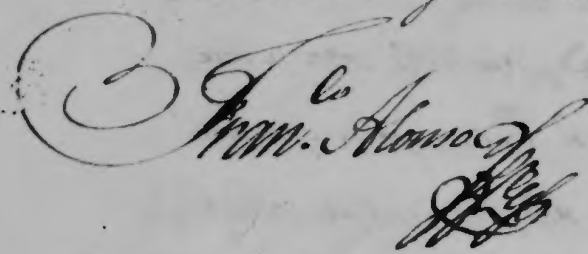 Fran.co Alonso